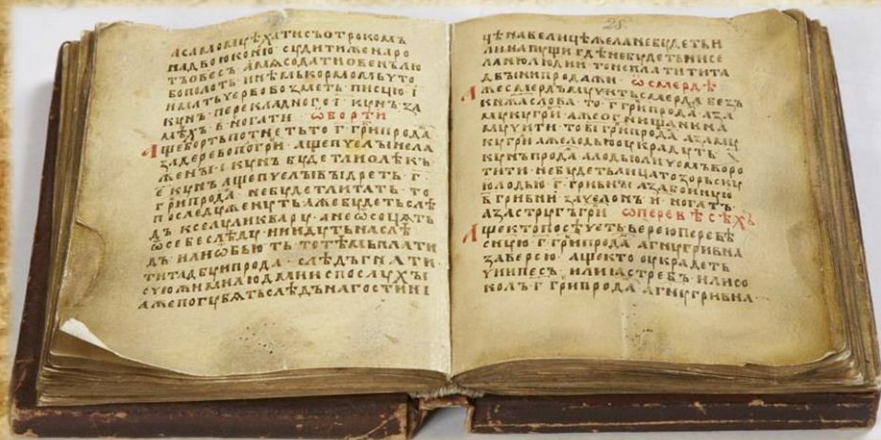 асамомꙋѣхатисъотрокомъ
надвоюконю сꙋдитиженаро
тъовесъ амѧсодатиовенълю
бополоть инѣмькормомьꙋто
писцюі
кꙋнъ перекладногоі кꙋнъза
мѣхъ в ногати ѡборти
ашебортьпотнетьтог грипрода
задеревопогри ашепчелꙑнела
женꙑі кꙋнъ бꙋдетлиолѣкъ
е кꙋнъ ашепчелꙑвꙑдреть г
грипрода небꙋдетлитать то
послѣдꙋженꙋть ажебꙋдетьслѣ
дъ кселꙋиликварꙋ анеѡсочѧть
ѡсебеслѣдꙋ нинидꙋтьнаслѣ
дъ илиѡбьють тотѣмьплатити
прода слѣдъгнати
счюжимилюдминиспослꙋхꙑ
ажепогꙋбѧтьслѣдънагостині
28
чѣнавелицѣжеланебꙋдетьи
лина гдѣнебꙋдетьнисе
ланилюдии тонеплатитита
двꙑнипродажи ѡсмердѣ
ажесмердъмꙋчитьсмердабезъ
кнѧжаслова то г грипрода аза
мꙋкꙋгри ажеогнищанина
мꙋчити тові грипрода азамꙋ
кꙋгри ажелодьюоукрадꙋть
кꙋнъпрода алодьюлицемьворо
тити небꙋдетьлицатозорьскꙋ
юлодью г гривнꙑ азанабоинꙋю
в гривни зачелонъ и ногатъ
азастрꙋгъгри ѡперевѣсѣхъ
ащектопосѣчетьверюперевѣ
снꙋю г грипрода агнꙋгривна
заверею ащекто оукрадеть
чиипесъ илиꙗстребъ илисо
колъ г грипрода агнꙋгривна